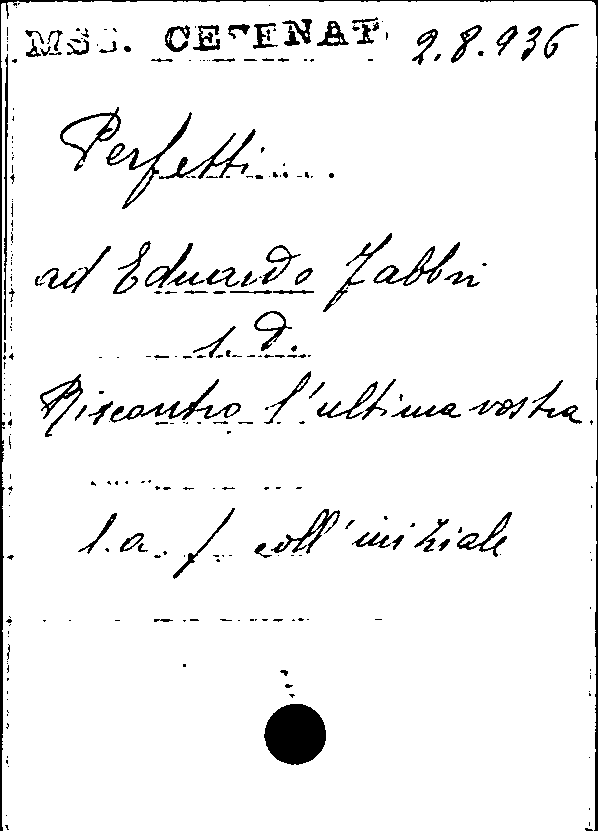 MSS. CESENAT. 2.8.936
Perfetti ....
ad Eduardo Fabbri
s. d.
Riscontro l'ultima vostra.
l. a. f. coll'iniziale